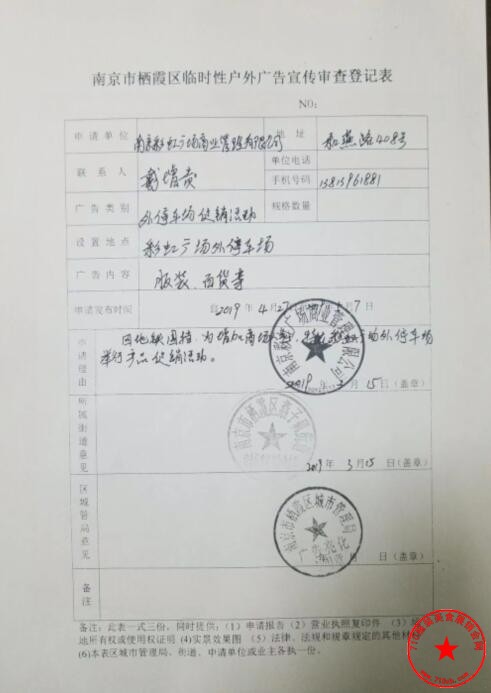 南京市栖霞区临时性户外广告宣传审查登记表
NO:
申请单位 南京彩虹广场商业管理有限公司 地址 和燕路408号
联系人 戴增贵 单位电话
手机号码 13815961881
广告类别 外停车场促销活动 规格数量
设置地点 彩虹广场外停车场
广告内容 服装、百货等
申请发布时间 自2019年4月27 7日
申请理由 因地铁围挡,为增加商场 广场外停车场
举行产品促销活动。
南京彩虹广场商业管理有限公司
2019年3月15日(盖章)
所属街道意见 南京市栖霞区
2019年3月15日(盖章)
区城管局意见 南京市栖霞区城市管理局
广告亮化
月 日(盖章)
备注
备注:此表一式三份,同时提供:(1)申请报告(2)营业执照复印件(3)
地所有权或使用权证明(4)实景效果图(5)法律、法规和规章规定的其他材
(6)本表区城市管理局、街道、申请单位或业主各执一份。